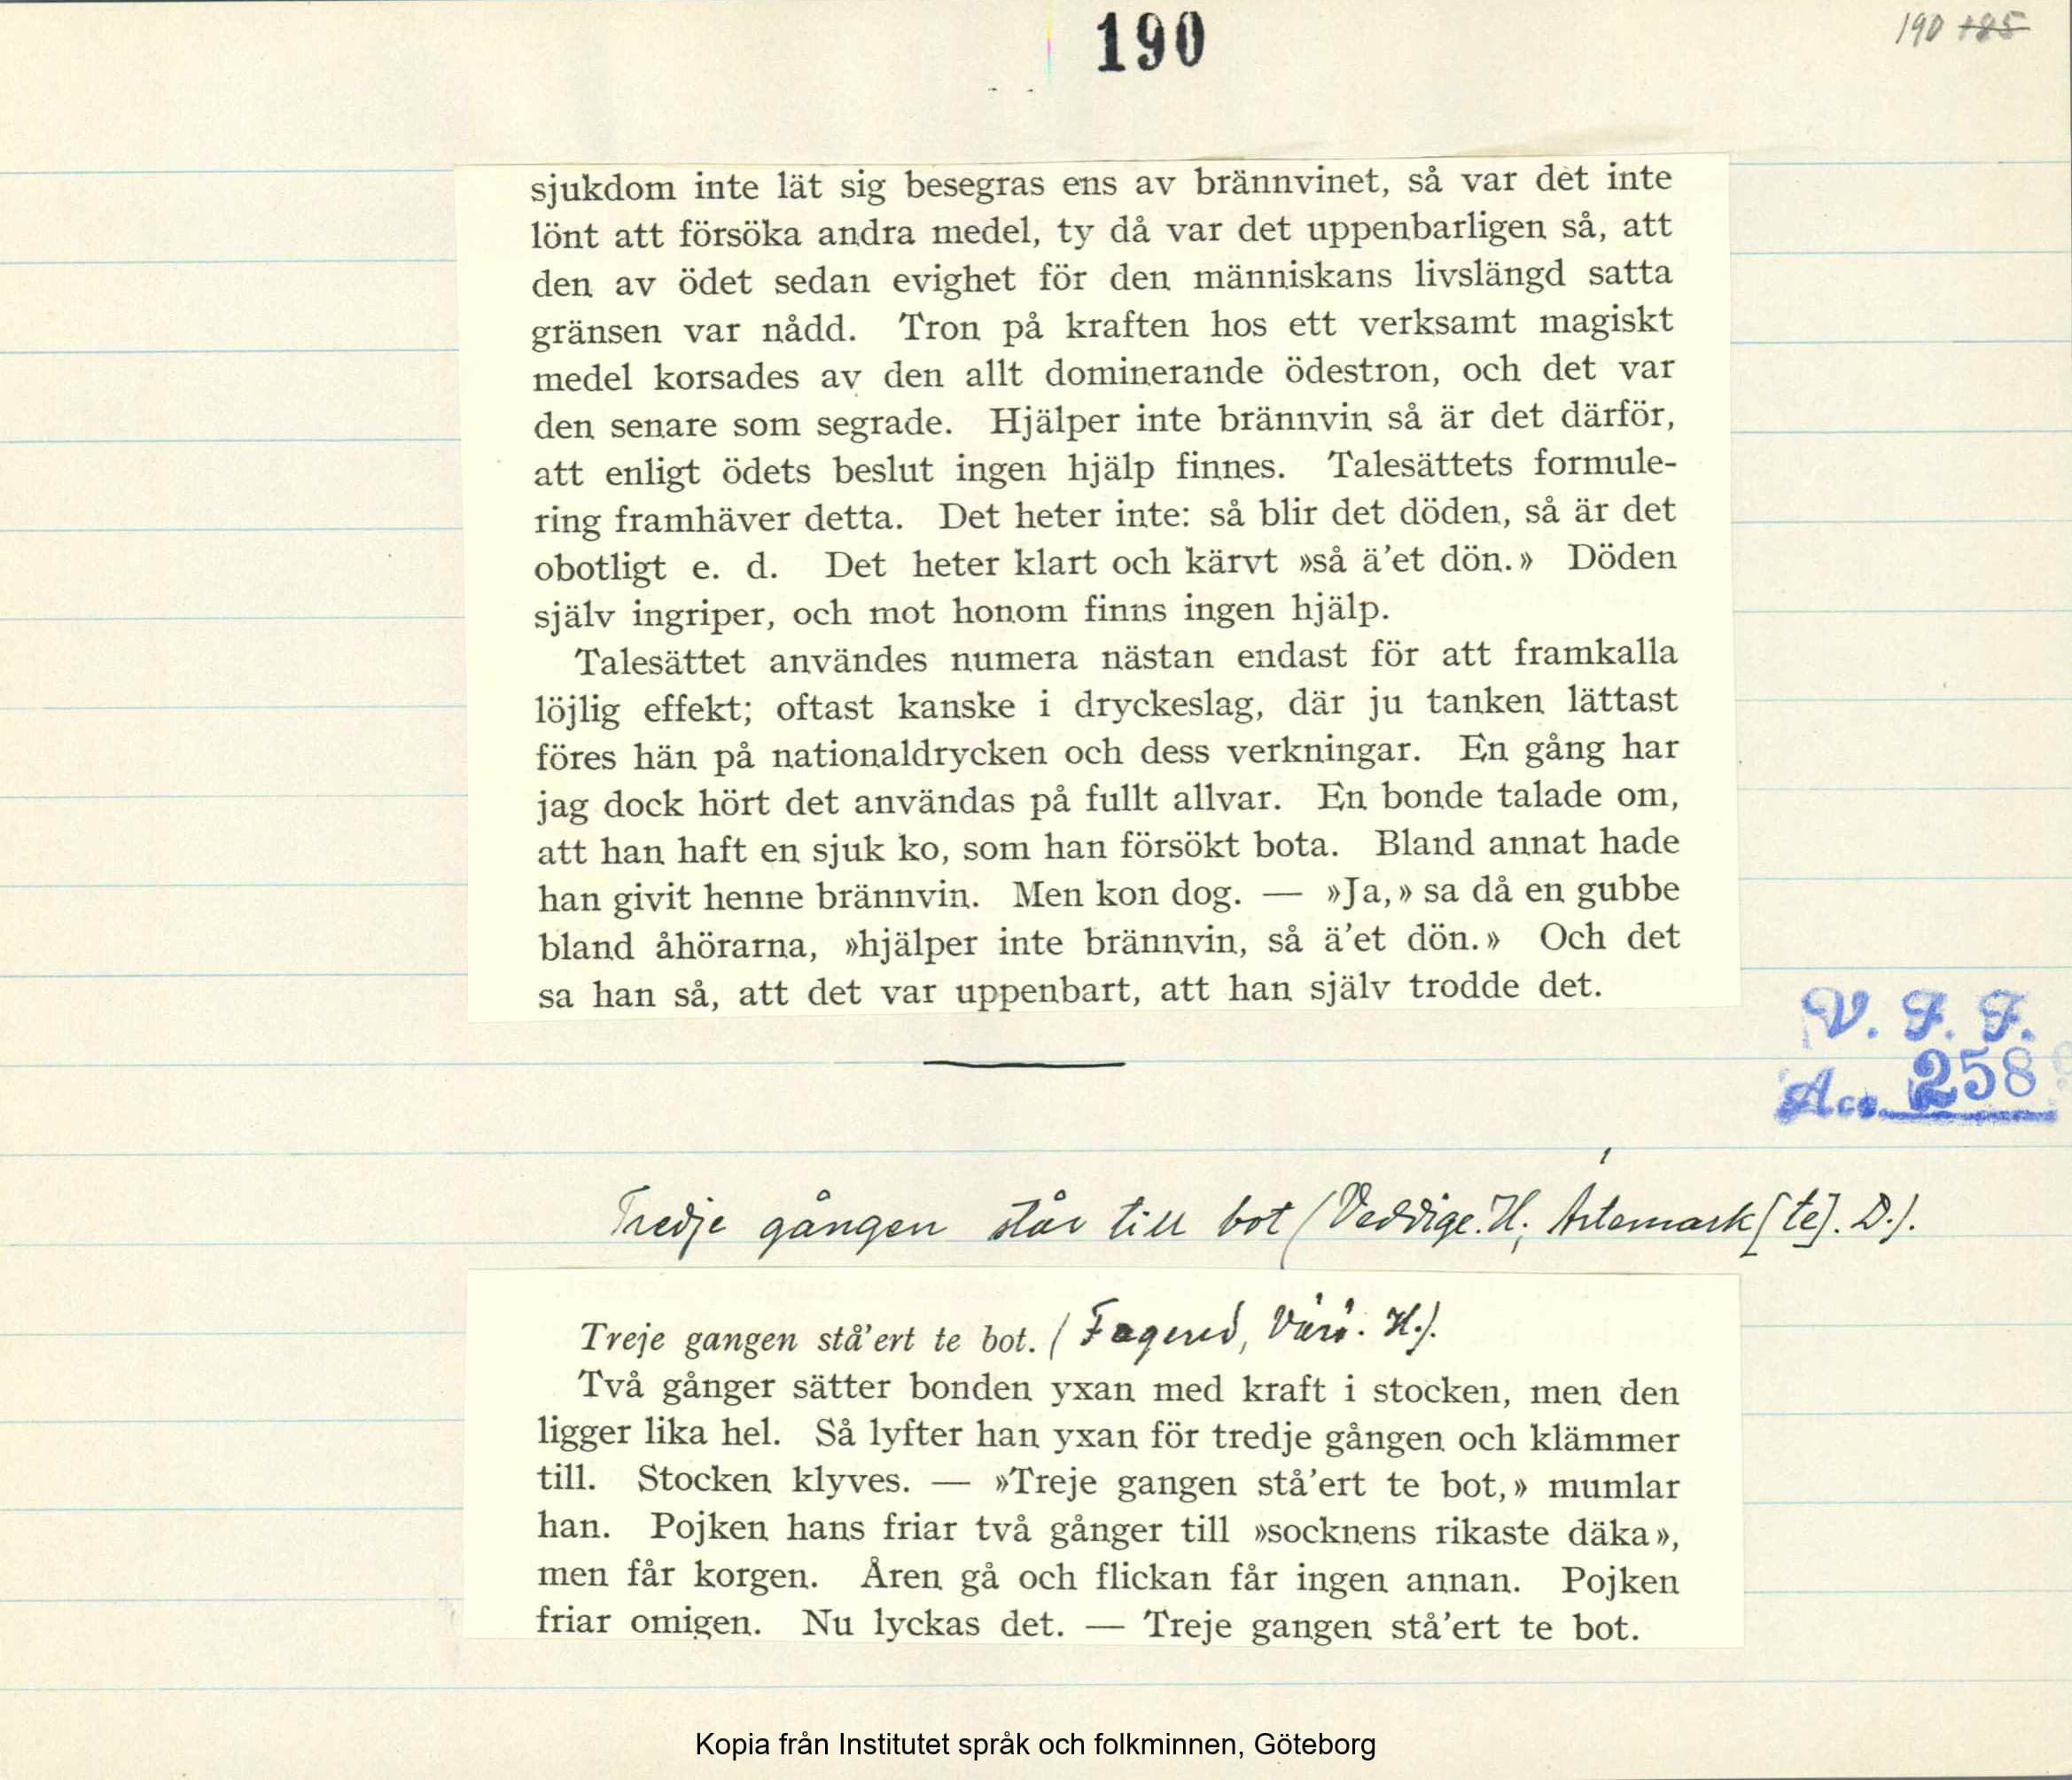 190
190 185
sjukdom inte lät sig besegras ens av brännvinet, så var det inte
lönt att försöka andra medel, ty då var det uppenbarligen så, att
den av ödet sedan evighet för den människans livslängd satta
gränsen var nådd. Tron på kraften hos ett verksamt magiskt
medel korsades av den allt dominerande ödestron, och det var
den senare som segrade. Hjälper inte brännvin så är det därför,
att enligt ödets beslut ingen hjälp finnes. Talesättets formule-
ring framhäver detta. Det heter inte: så blir det döden, så är det
obotligt e. d. Det heter klart och kärvt »så ä'et dön.» Döden
själv ingriper, och mot honom finns ingen hjälp.
Talesättet användes numera nästan endast för att framkalla
löjlig effekt; oftast kanske i dryckeslag, där ju tanken lättast
föres hän på nationaldrycken och dess verkningar. En gång har
jag dock hört det användas på fullt allvar. En bonde talade om,
att han haft en sjuk ko, som han försökt bota. Bland annat hade
han givit henne brännvin. Men kon dog. — »Ja,» sa då en gubbe
bland åhörarna, »hjälper inte brännvin, så ä'et dön.» Och det
sa han så, att det var uppenbart, att han själv trodde det.
V. F. F.
Acc. 258
Tredje gången står till bot (Veddige. H; Ärtemark [te]. D.).
Treje gangen stå'ert te bot. (Fagered, Värö. H.).
Två gånger sätter bonden yxan med kraft i stocken, men den
ligger lika hel. Så lyfter han yxan för tredje gången och klämmer
till. Stocken klyves. — »Treje gangen stå'ert te bot,» mumlar
han. Pojken hans friar två gånger till »socknens rikaste däka»,
men får korgen. Åren gå och flickan får ingen annan. Pojken
friar omigen. Nu lyckas det. — Treje gangen stå'ert te bot.
Kopia från Institutet språk och folkminnen, Göteborg